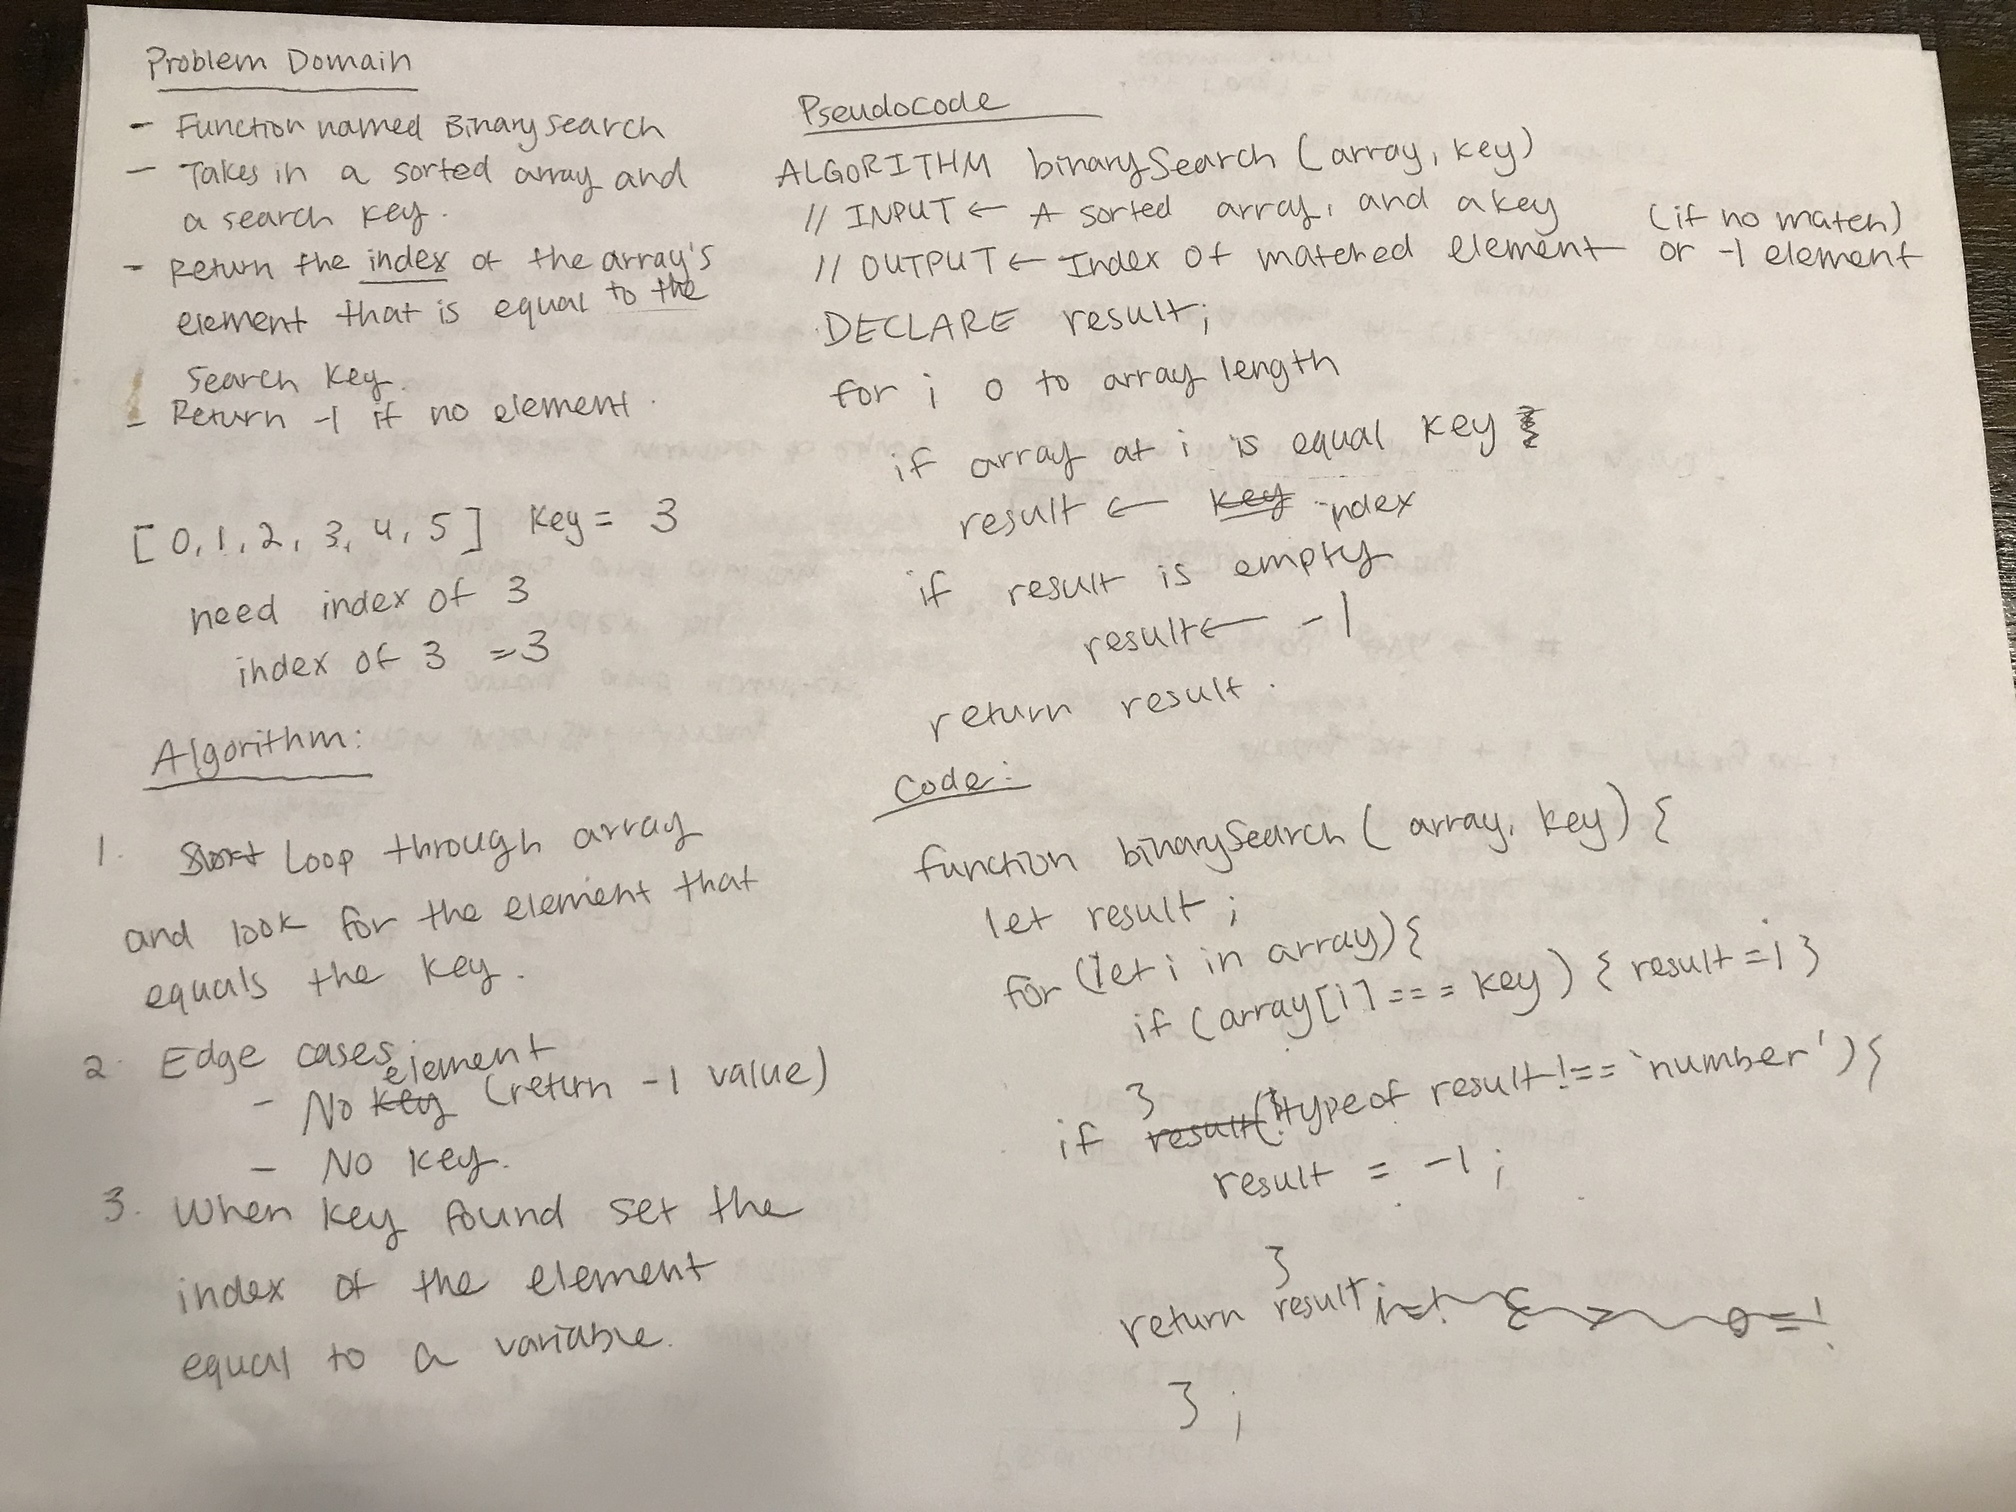 Problem Domain
- Function named BinarySearch
- Takes in a sorted array and
a search key.
- Return the index of the array's
element that is equal to the
search key.
- Return -1 if no element.
[0,1,2,3,4,5] Key = 3
need index of 3
index of 3 = 3
Algorithm:
1. Loop through array
and look for the element that
equals the key.
2. Edge cases
- No key element (return -1 value)
- No key.
3. When key found set the
index of the element
equal to a variable.
Pseudocode
ALGORITHM binarySearch (array, key)
// INPUT ← A sorted array, and a key
// OUTPUT ← Index of matched element or -1 element (if no match)
DECLARE result;
for i 0 to array length
if array at i is equal key
result ← key index
if result is empty
result ← -1
return result.
Code:
function binarySearch ( array, key) {
let result ;
for (let i in array) {
if (array[i] === key) { result = i }
}
if result (typeof result !== `number') {
result = -1 ;
}
return result
} ;